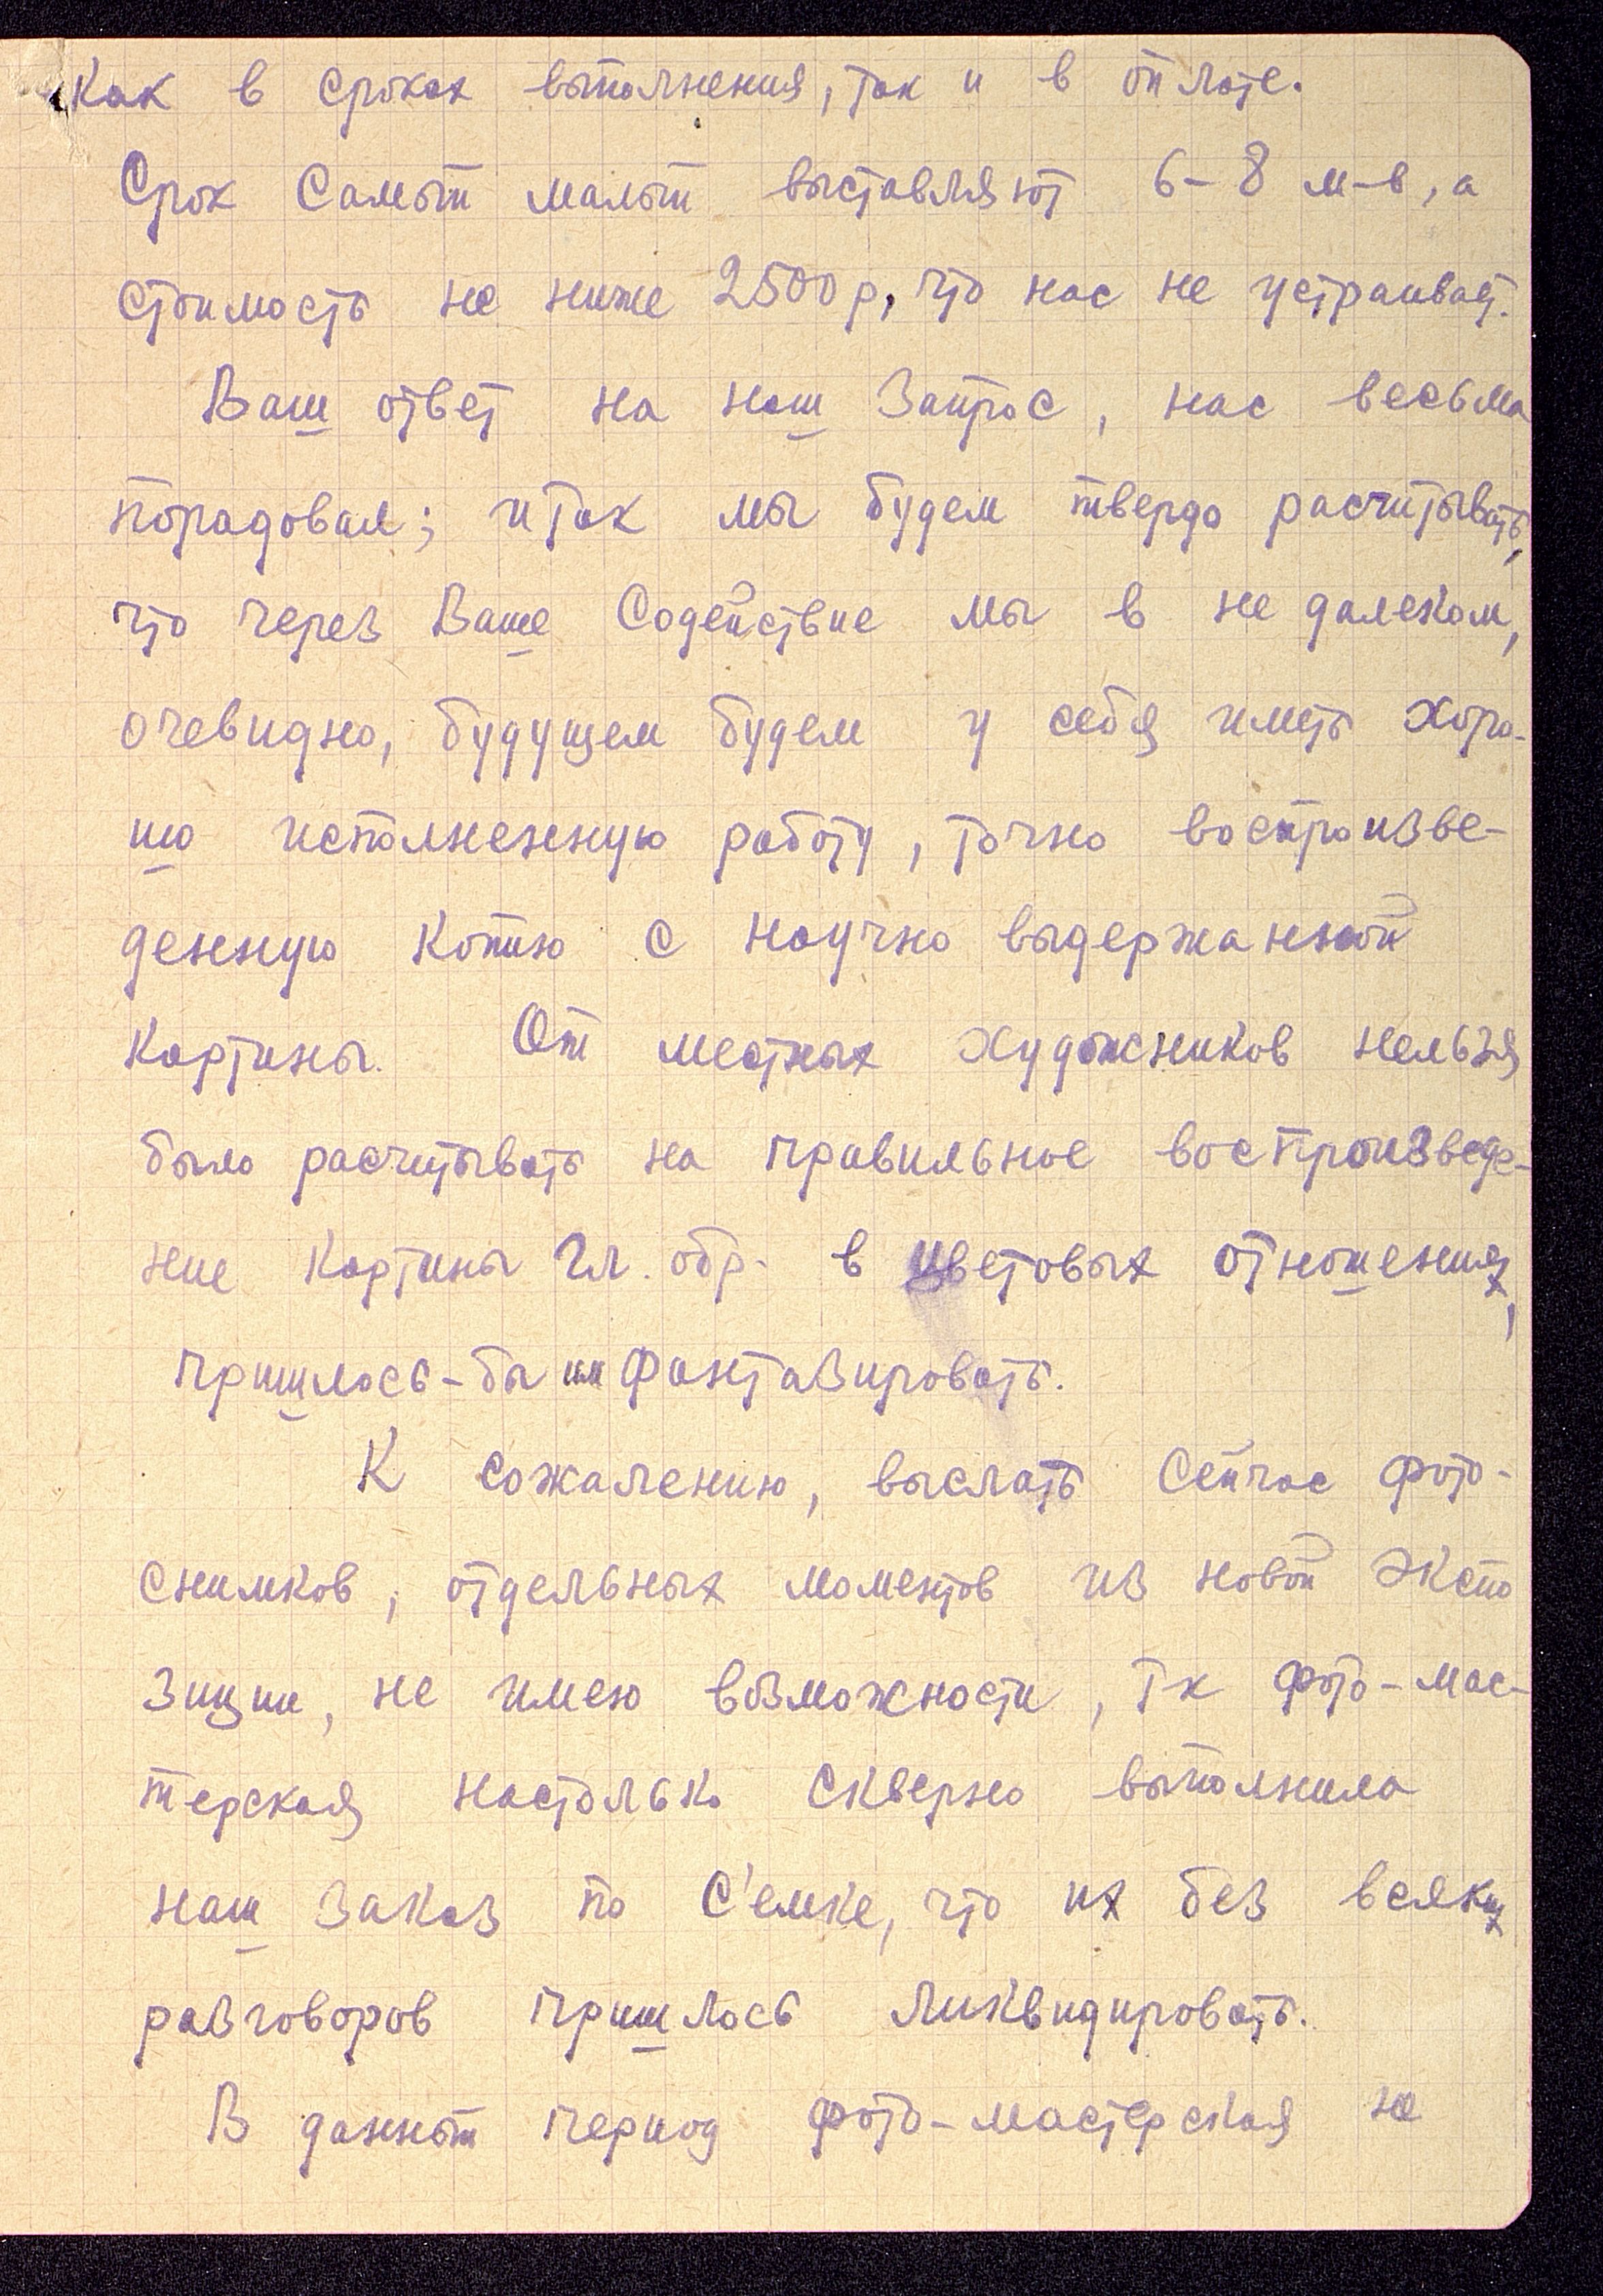 Как в сроках выполнения, так и в оплате.
Срок самый малый выставляют 6-8 м-в, а
стоимость не ниже 2500 р, что нас не устраивает.
Ваш ответ на наш запрос, нас весьма
порадовал; итак мы будем твердо расчитывать,
что через Ваше содействие мы в не далеком,
очевидно, будущем будем у себя иметь хоро-
шо исполненную работу, точно воспроизве-
денную копию с научно выдержанной
картины. От местных художников нельзя
было расчитывать на правильное воспроизведе-
ние картины гл. обр. в цветовых отношениях,
пришлось-бы им фантазировать.
К сожалению, выслать сейчас фото-
снимков, отдельных моментов из новой экспо
зиции, не имею возможности, т к фото-мас-
терская настолько скверно выполнила
наш заказ по с'емке, что их без всяких
разговоров пришлось ликвидировать.
В данный период фото-мастерская не